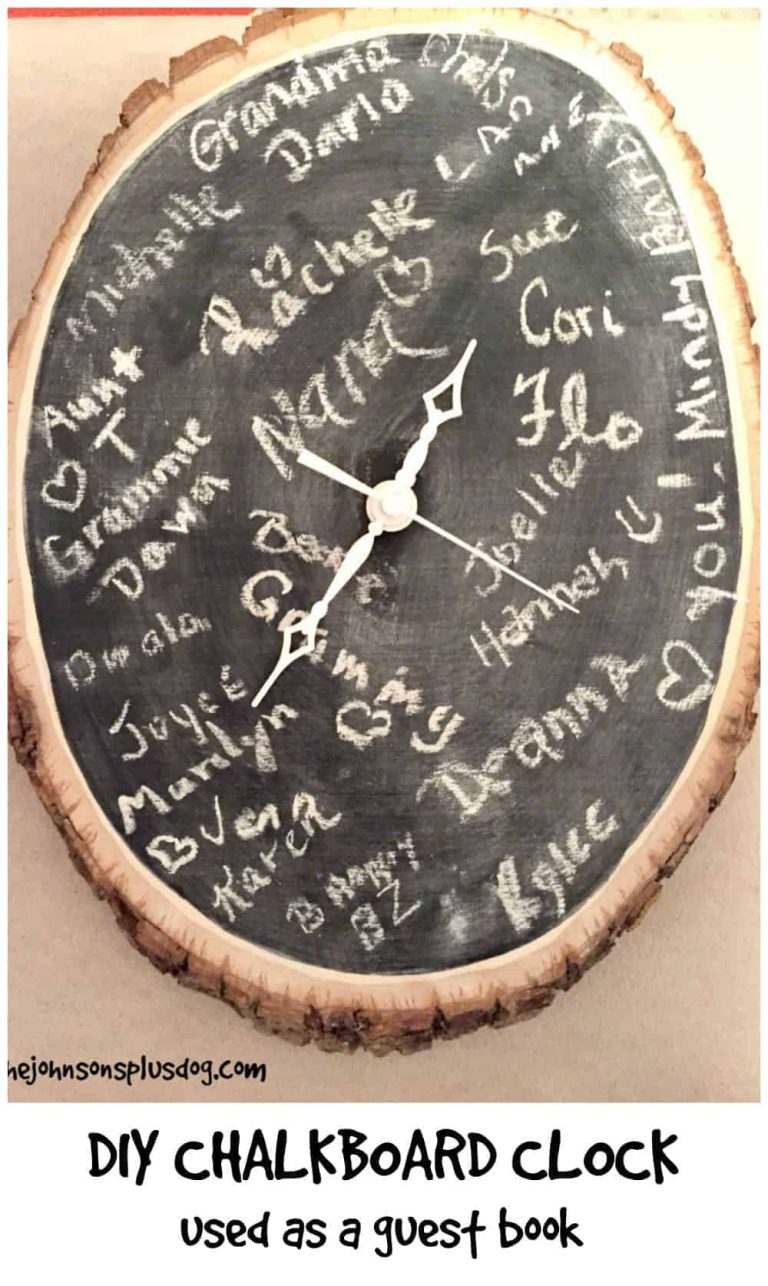 Grandma
Darla
Chelsea
Michelle
Rachelle
Sue
Nana
Cori
Barb
Mindy
Flo
Aunt
T
Grammie
Dawn
Joelle
Hannah
Grammy
Joyce
Marilyn
Deanna
Jen
Karen
BZ
Rylee
hejohnsonsplusdog.com
DIY CHALKBOARD CLOCK
used as a guest book